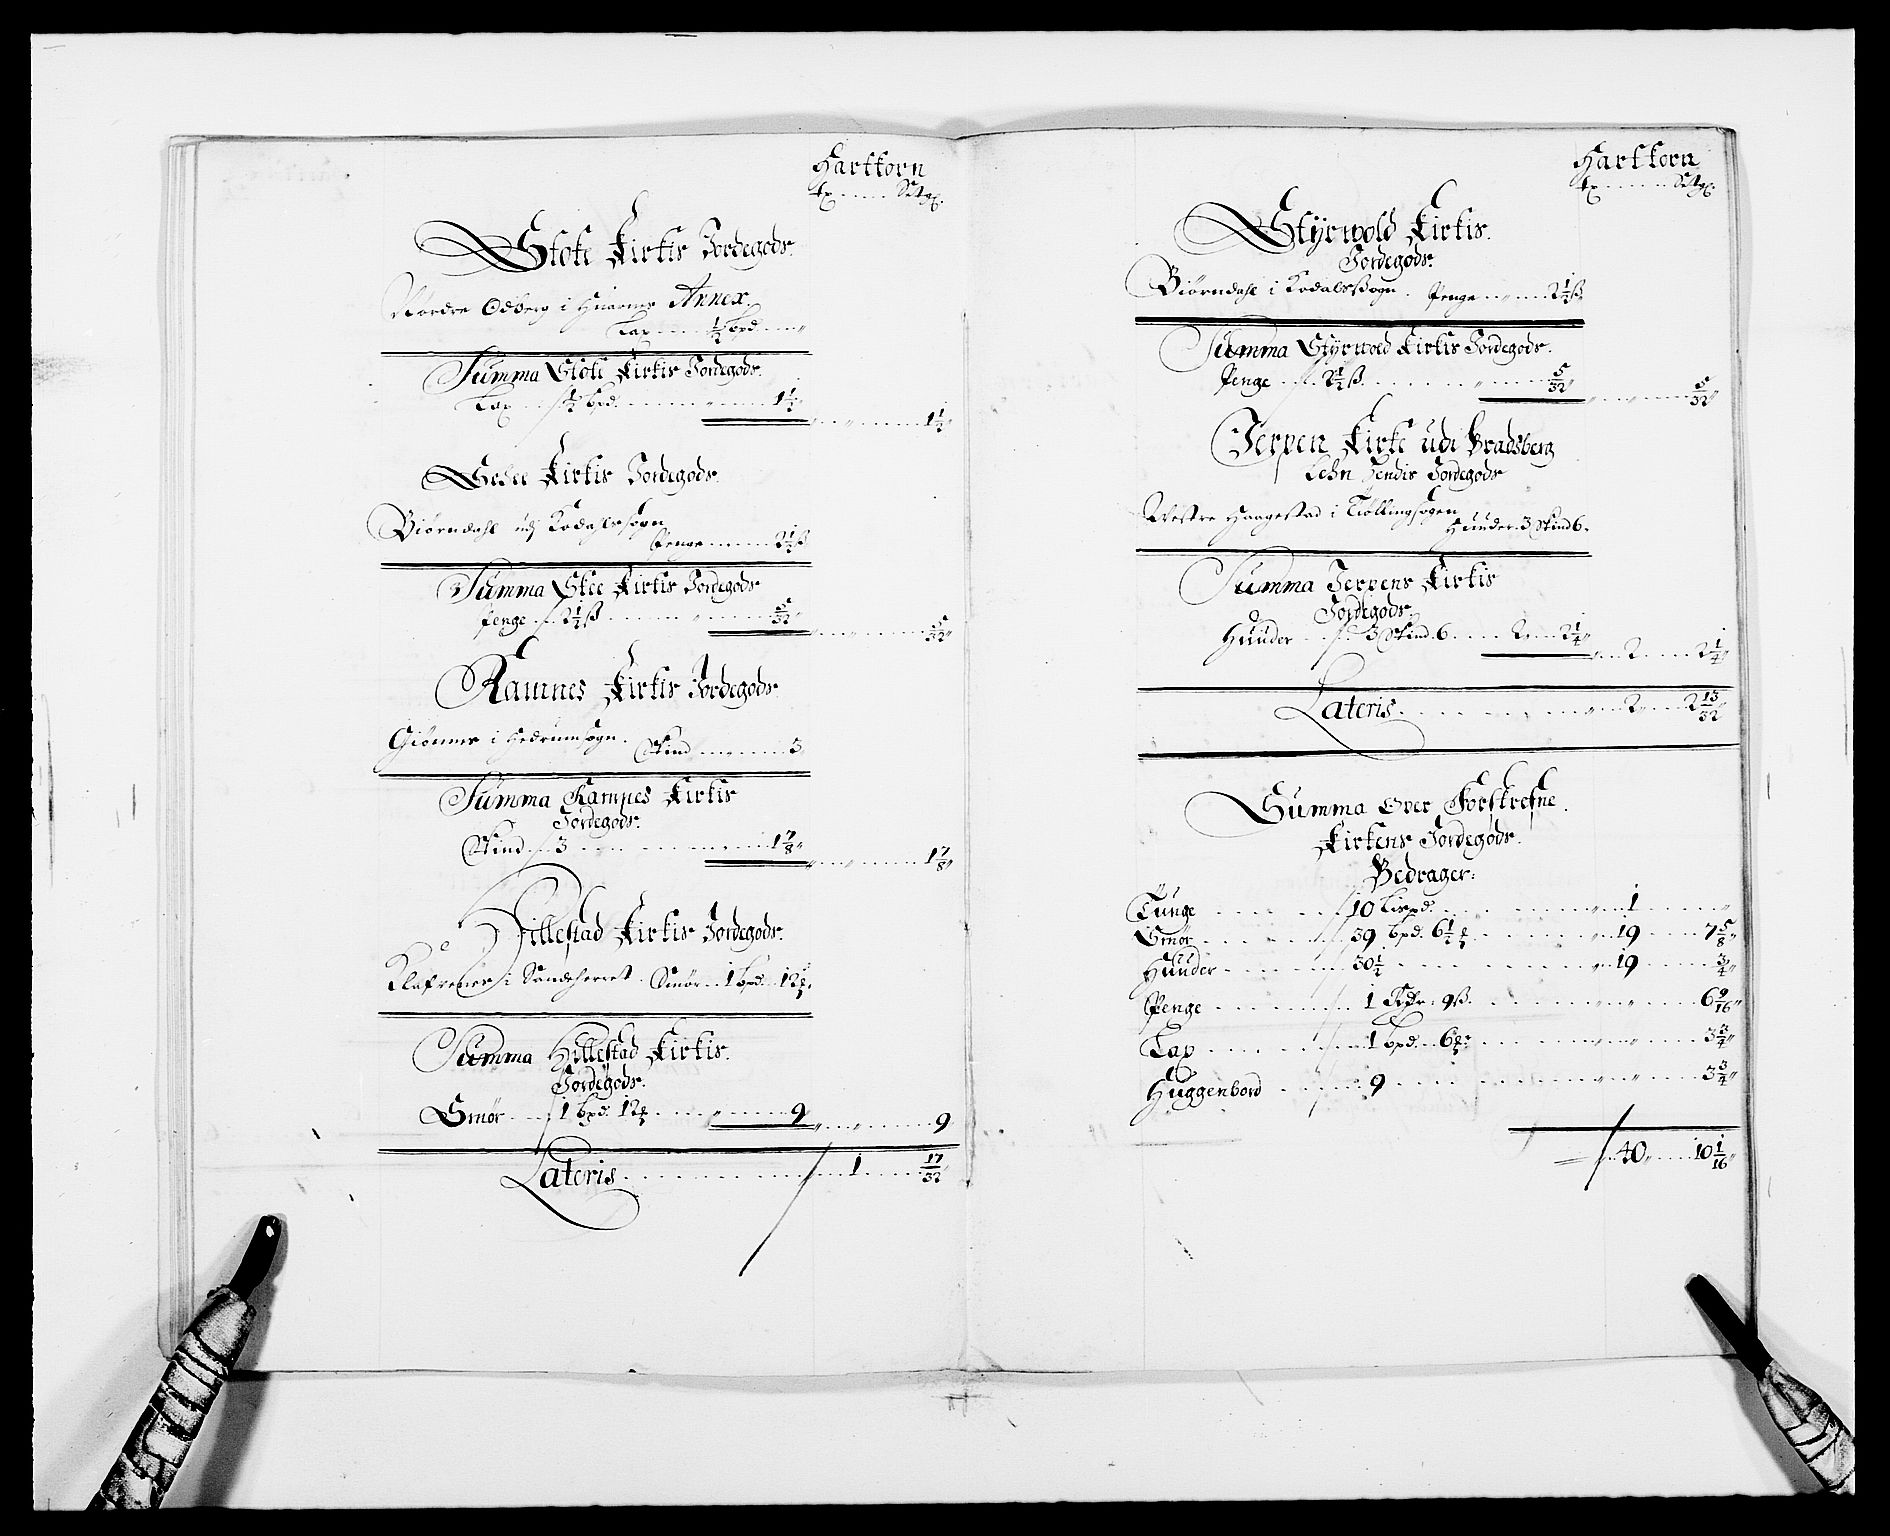 Harttorn
tr ..... Settg.
Stoke Kirkis Jordegods.
Nordre Odberg i Huarnes Annex.
Lax ..... ½ bpd ....
Summa Stoke Kirkis Jordegods.
Lax ... ½ bpd. ........ 1½ ........ 1½
Kirkis Jordegods.
Biørndahl udj Kodahlssogn
Penge ....... 2½ ß
Summa Skee Kirkis Jordegods
Penge ... 2½ ß ........ 5/32 ........ 5/32
Ramnes Kirkis Jordegods.
Giønnes i Hedrumsogn. Skind ....... 3
Summa Ramnes Kirkis
Jordegods.
Skind ... 3 ........ 1 7/8 ........ 1 7/8
Hillestad Kirkis Jordegods.
i Sandeherret. Smør .. 1 bpd. 12
Summa Hillestad Kirkis.
Jordegods.
Smør ... 1 bpd. 12 ........ 9 ........ 9
Lateris ........ 1 .... 17/32
Harttorn
tr ..... Settg.
Styrwold Kirkis.
Jordegods.
Biørndahl i Kodalssogn. Penge ..... 2½ ß
Summa Styrwold Kirkis Jordegods.
Penge ... 2½ ß ........ 5/32 ........ 5/32
Jerpen Kirke udi Bradsberg
Lehn Hendis Jordegods
Westre Haagestad i Tiøllingsogen
Huuder. 3 Skind 6.
Summa Jerpens Kirkis
Jordegods.
Huuder ... 3 Skind. 6 .... 2 .. 2¼ .... 2 .... 2¼
Lateris ........ 2 .... 2 13/32
Summa Over Forskrefne.
Kirkens Jordegods.
Bedrager:
Tunge ........ 10 Lispd. ........ 1 ....
Smør ........ 39 bpd. 6½ ........ 19 .... 7 5/8
Huuder ........ 30½ ........ 19 .... ¾
Penge ........ 1 Rdr: 9 ß. ........ 6 9/16
Lax ........ 1 bpd. 6 ........ 3¾
Huggenbord ........ 9 ........ 3¾
40 .... 10 1/16